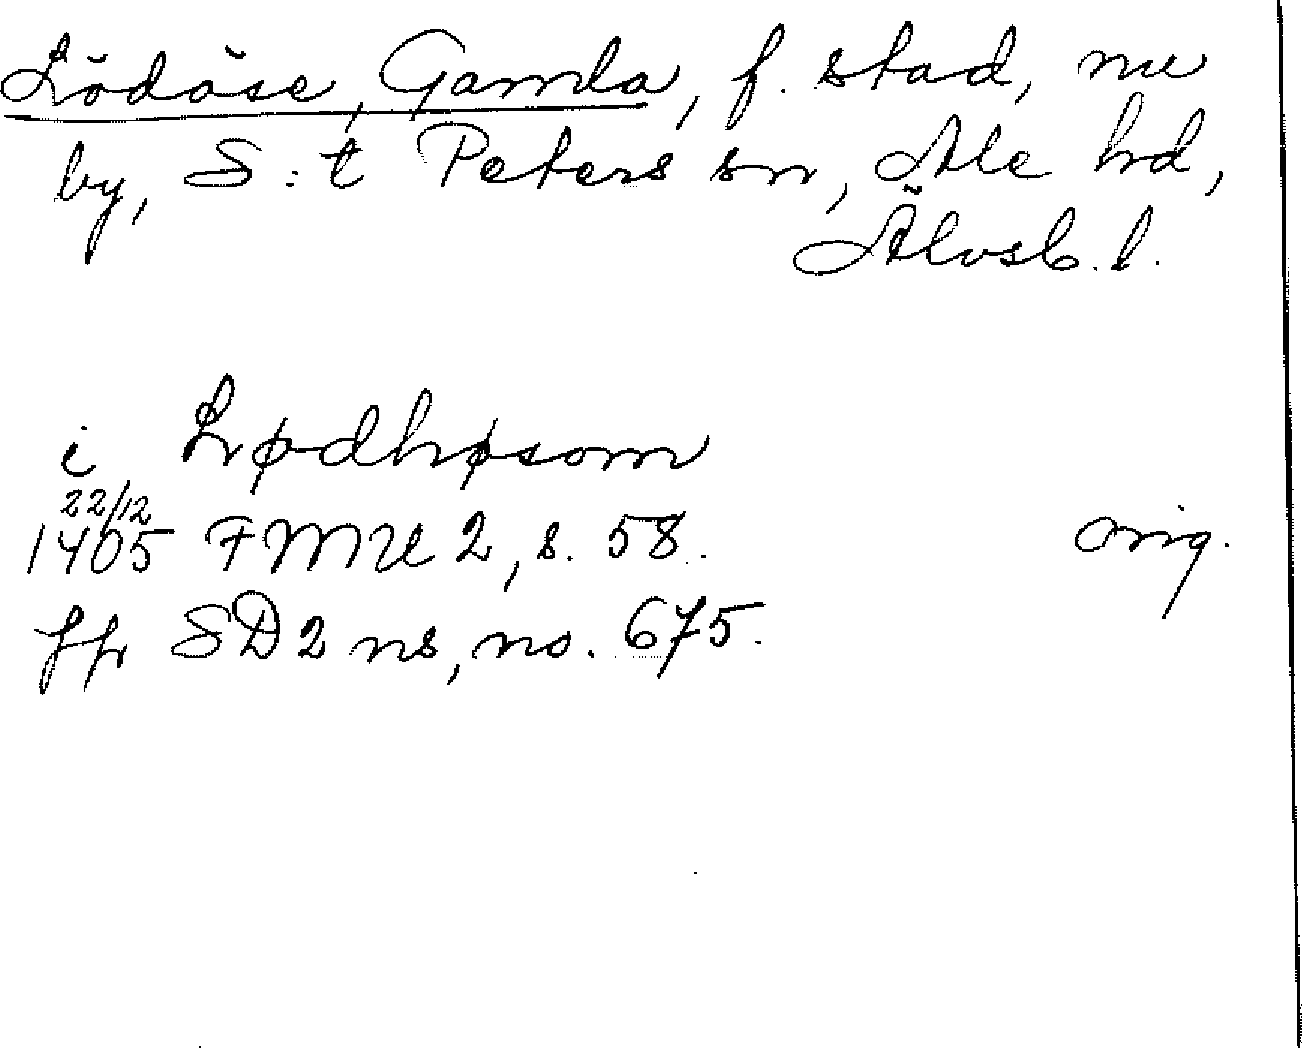 Lödöse, Gamla, f. stad, nu
by, S:t Peters sn, Ale hd,
Älvsb. l.
i Lødhøsom
22/12
1405 FMU 2, s. 58. orig.
jfr SD 2 ns, no. 675.